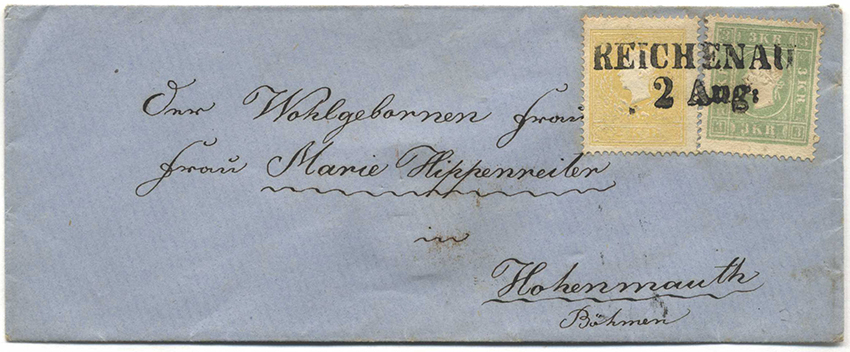 3 KR
3 KR
3 KR
REICHENAU
2 Aug:
Der Wohlgebornen Frau
Frau Marie Hippenreiter
in
Hohenmauth
Böhmen